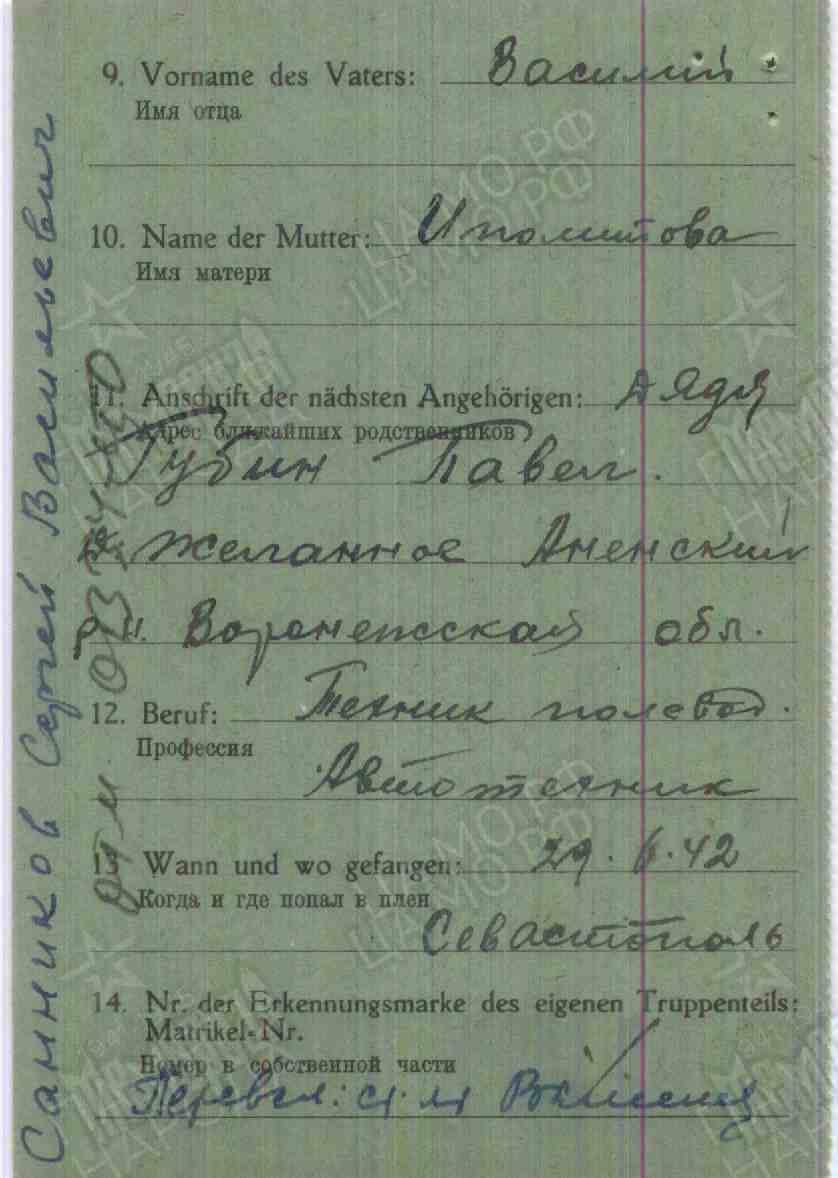 9. Vorname des Vaters: Василий
Имя отца
10. Name der Mutter: Иполитова
Имя матери
11. Anschrift der nächsten Angehörigen: Дядя
Адрес ближайших родственников)
Губин Павел.
д. Желанное Аненский
р-н. Воронежская обл.
12. Beruf: Техник полевод.
Профессия
Автотехник
13 Wann und wo gefangen: 29.6.42
Когда и где попал в плен
Севастополь
14. Nr. der Erkennungsmarke des eigenen Truppenteils:
Matrikel-Nr.
Номер в собственной части
Перевел:
Санников Сергей Васильевич
ЦАМО.РФ
ЦАМО.РФ